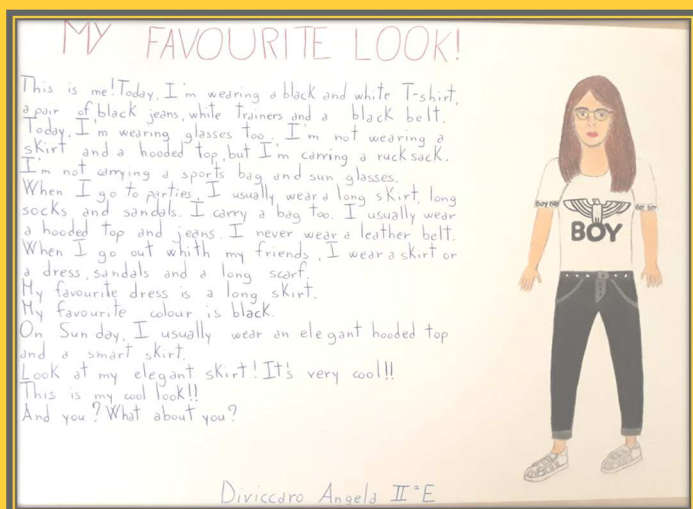 MY FAVOURITE LOOK!
This is me! Today, I'm wearing a black and white T-shirt,
a pair of black jeans, white trainers and a black belt.
Today, I'm wearing glasses too. I'm not wearing a
skirt and a hooded top, but I'm carring a ruck sack.
I'm not carrying a sports bag and sun glasses.
When I go to parties, I usually wear a long skirt, long
socks and sandals. I carry a bag too. I usually wear
a hooded top and jeans. I never wear a leather belt.
When I go out whith my friends, I wear a skirt or
a dress, sandals and a long scarf.
My favourite dress is a long skirt.
My favourite colour is black.
On Sunday, I usually wear an elegant hooded top
and a smart skirt.
Look at my elegant skirt! It's very cool!!
This is my cool look!!
And you? What about you?
BOY
Diviccaro Angela II°E